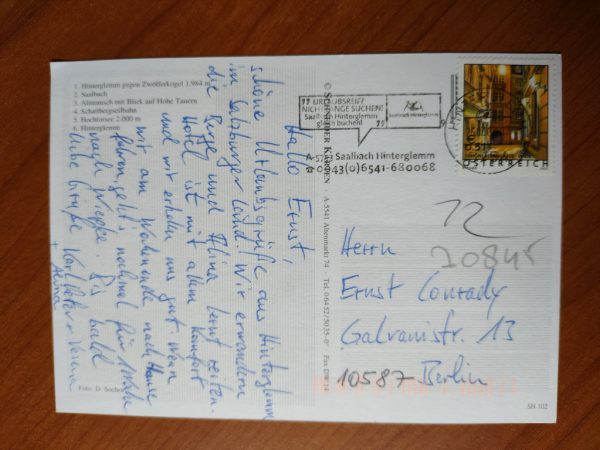 1. Hinterglemm gegen Zwölferkogel 1.984 m
2. Saalbach
3. Almrausch mit Blick auf Hohe Tauern
4. Schattbergseilbahn
5. Hochtorsee 2.000 m
6. Hinterglemm
Hallo Ernst,
schöne Urlaubsgrüße aus Hinterglemm
im Salzburger Land! Wir erwandern
die Berge und Alina lernt reiten.
Hotel ist mit allem Komfort
und wir erholen uns gut. Wenn
wir am Wochenende nach Hause
fahren geht's nochmal für
nach Bis bald
liebe Grüße Verena
+ Alina
Foto: D.
© SCHNEIDER KARTEN · A-5541 Altenmarkt 74 · Tel. 06452/5035-0 · Fax DW 14
URLAUBSREIF?
NICHT LANGE SUCHEN!
Saalbach Hinterglemm
gleich buchen!
Saalbach Hinterglemm
A-5753 Saalbach Hinterglemm
0043(0)6541-680068
ÖSTERREICH
12
20845
Herrn
Ernst Conrady
Galvanistr. 13
10587 Berlin
SH 102